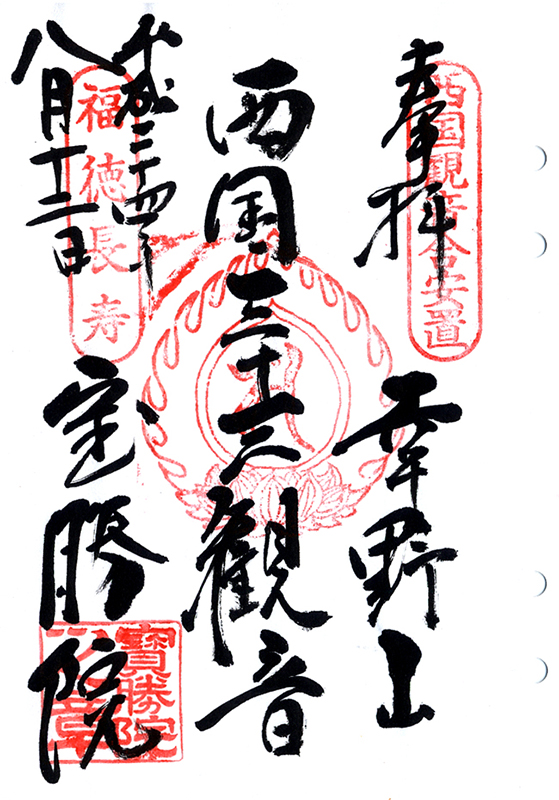 奉拝
西国観音
安置
野山
西国三十三観音
平成二十四年
八月十二日
福徳長寿
宝勝院
寶勝院